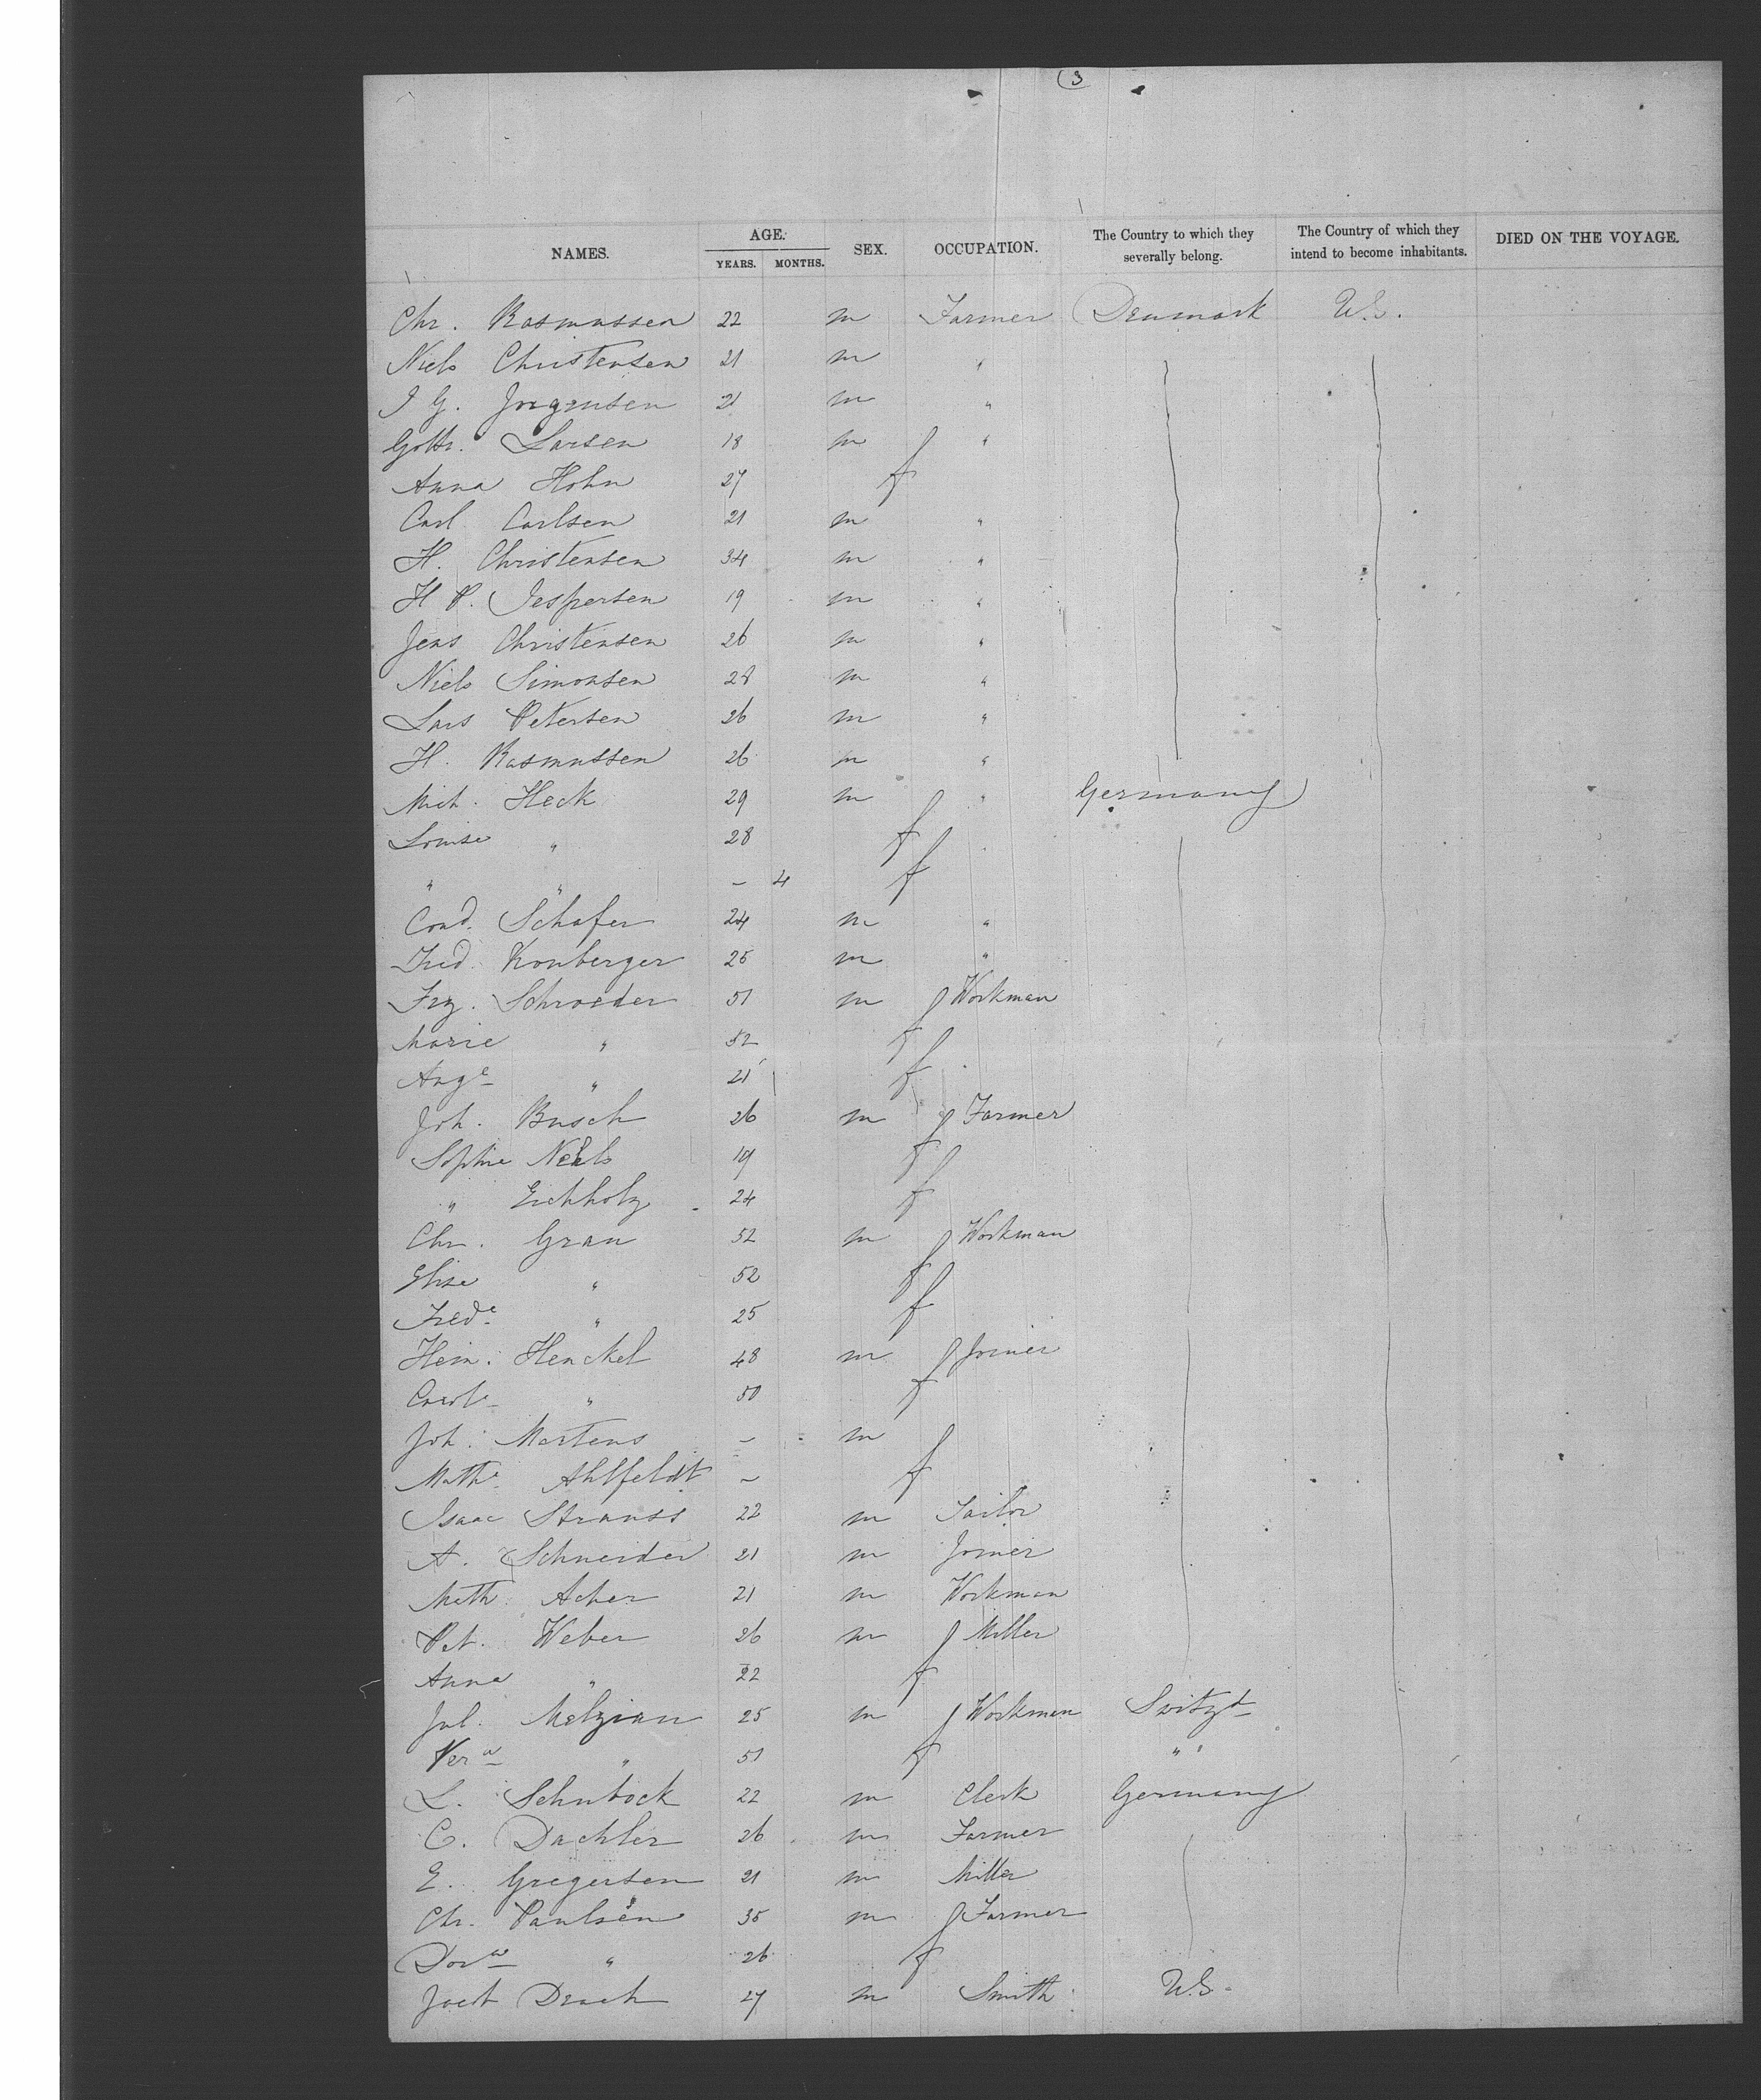 3
NAMES. AGE. YEARS. MONTHS. SEX. OCCUPATION. The Country to which they severally belong. The Country of which they intend to become inhabitants. DIED ON THE VOYAGE.
Chr. Rasmussen 22 m Farmer Denmark U.S.
Niels Christensen 21 m "
J G. Jorgensen 21 m "
Gottr. Larsen 18 m "
Anna Hohn 27 f
Carl Carlsen 21 m "
H. Christensen 34 m "
H P. Jespersen 19 m "
Jens Christensen 26 m "
Niels Simonsen 28 m "
Lars Petersen 26 m "
H. Rasmussen 26 m "
Mich. Heck 29 m " Germany
Louise " 28 f
" " - 4 f
Cond. Schafer 24 m "
Fred. Konberger 25 m "
Frz. Schroeder 51 m Workman
Marie " 52 f
Auge " 21 f
Joh. Busch 26 m Farmer
Sophie 19 f
" Eichholz 24 f
Chr. Grau 52 m Workman
Elise " 52 f
Frede " 25 f
Hein. Henckel 48 m Joiner
Carole " 50 f
Joh. Martens - m
Mathe Ahlfeldt - f
Isaac Strauss 22 m Tailor
A. Schneider 21 m Joiner
Math. Acher 21 m Workman
Pet. Weber 26 m Miller
Anna " 22 f
Jul. Melzian 25 m Workman Switzd
Vera " 51 f " "
L. Schubock 22 m Clerk Germany
C. Dachler 26 m Farmer
E. Gregersen 21 m Miller
Chr. Paulsen 35 m Farmer
Dora " 26 f
Jost Drach 27 m Smith U.S.